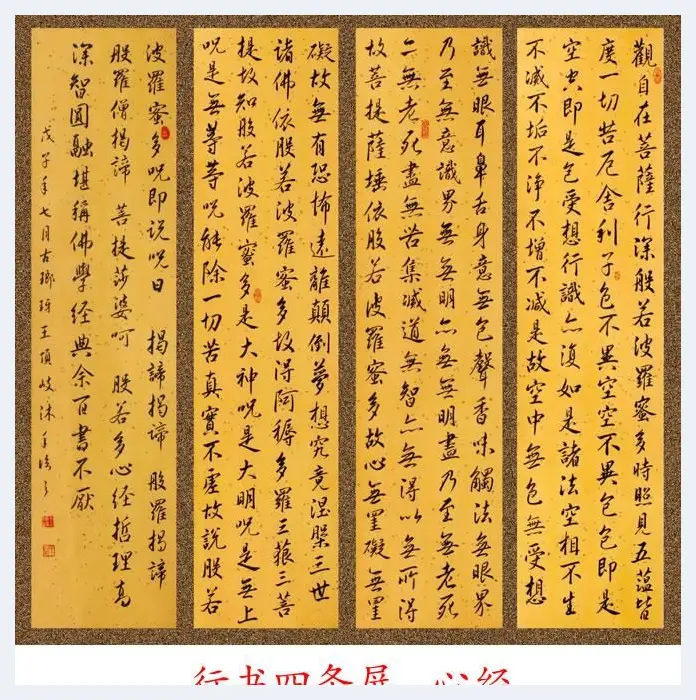 觀自在菩薩行深般若波羅蜜多時照見五蘊皆
度一切苦厄舍利子色不異空空不異色色即是
空空即是色受想行識亦復如是諸法空相不生
不滅不垢不淨不增不減是故空中無色無受想
識無眼耳鼻舌身意無色聲香味觸法無眼界
乃至無意識界無無明亦無無明盡乃至無老死
亦無老死盡無苦集滅道無智亦無得以無所得
故菩提薩埵依般若波羅蜜多故心無罣礙無罣
礙故無有恐怖遠離顛倒夢想究竟涅槃三世
諸佛依般若波羅蜜多故得阿耨多羅三藐三菩
提故知般若波羅蜜多是大神咒是大明咒是無上
咒是無等等咒能除一切苦真實不虛故說般若
波羅蜜多咒即說咒曰 揭諦揭諦 般羅揭諦
般羅僧揭諦 菩提莎婆呵 般若多心經哲理高
深智圓融堪稱佛學經典余百書不厭
戊子年七月古瑯玡王頂岐沐手
行书四条屏 心经